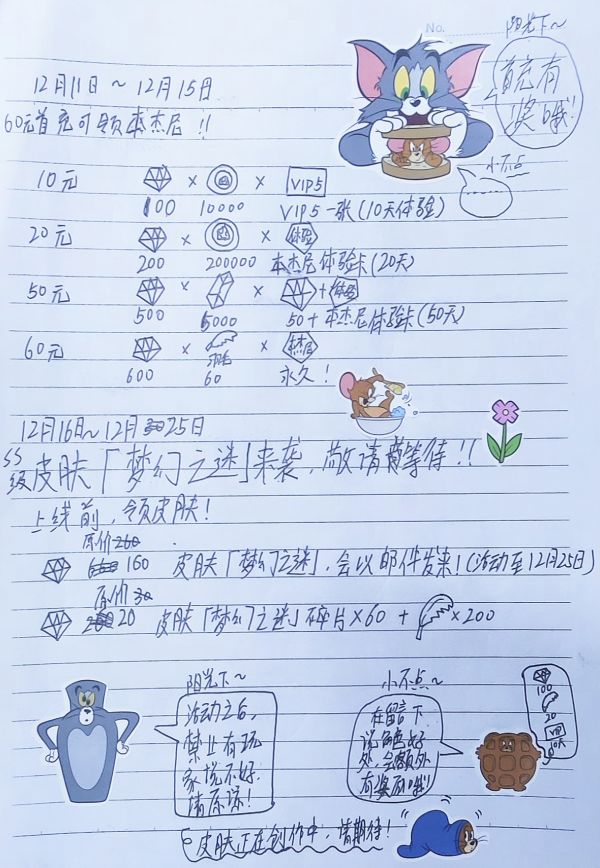 No.
阳光下~
首充有
奖哦!
12月11日 ~ 12月15日
60元首充可领本杰尼!!
小不点
10元 × × VIP5
100 10000 VIP5一张(10天体验)
20元 × × 体验
200 200000 本杰尼体验卡(20天)
50元 × × + 体验
500 5000 50+本杰尼体验卡(50天)
60元 × 羽毛 × 杰尼
600 60 永久!
12月16日~12月25日
SS级皮肤「梦幻之谜」来袭,敬请等待!!
上线前,领皮肤!
原价260
160 皮肤「梦幻之谜」,会以邮件发来!(活动至12月25日)
原价30
20 皮肤「梦幻之谜」碎片×60 + ×200
阳光下~
活动之后,
禁止有玩
家说不好.
请原谅!
小不点~
在留言下
说角色好
处,会额外
有奖励哦!
100
20
VIP
10天
皮肤正在创作中,请期待!